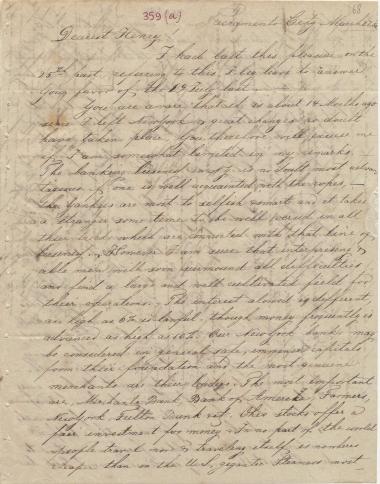 359 (a)
68
Sacramento City March
Dearest Henry
I had last this pleasure on the
25th past, refering to this, I beg leave to answer
Your favor of the 19 July last
You are aware that it is about 14 Months ago
since I left Newyork & great changes no doubt
have taken place, You therefore will excuse me
if I am somewhat limited in my remarks.
The banking business is no doubt most
if one is well acquainted with the ropes,
The Yankees are most to selfish & smart and it takes
a stranger some time to be well versed in all
their which are connected with that kind of
business. However I am sure that interprising &
able men will soon surmount all difficulties
and find a large and well cultivated field for
their operations. The interest alowed is different,
as high as 6% is lawful, though money frequently is
advanced as high as 10%. Our Newyork banks may
be considered in general safe, immense capitals
form their foundation and the most genuine
merchants are their The most important
are, Merchants Bank, Bank of America, Farmers,
Newyork Fulton Bank &ct. Their stocks offer a
fair investment for money. In no part of the world
people travel more & traveling itself is nowhere
cheaper than in the U.S., gigantic Steamers most